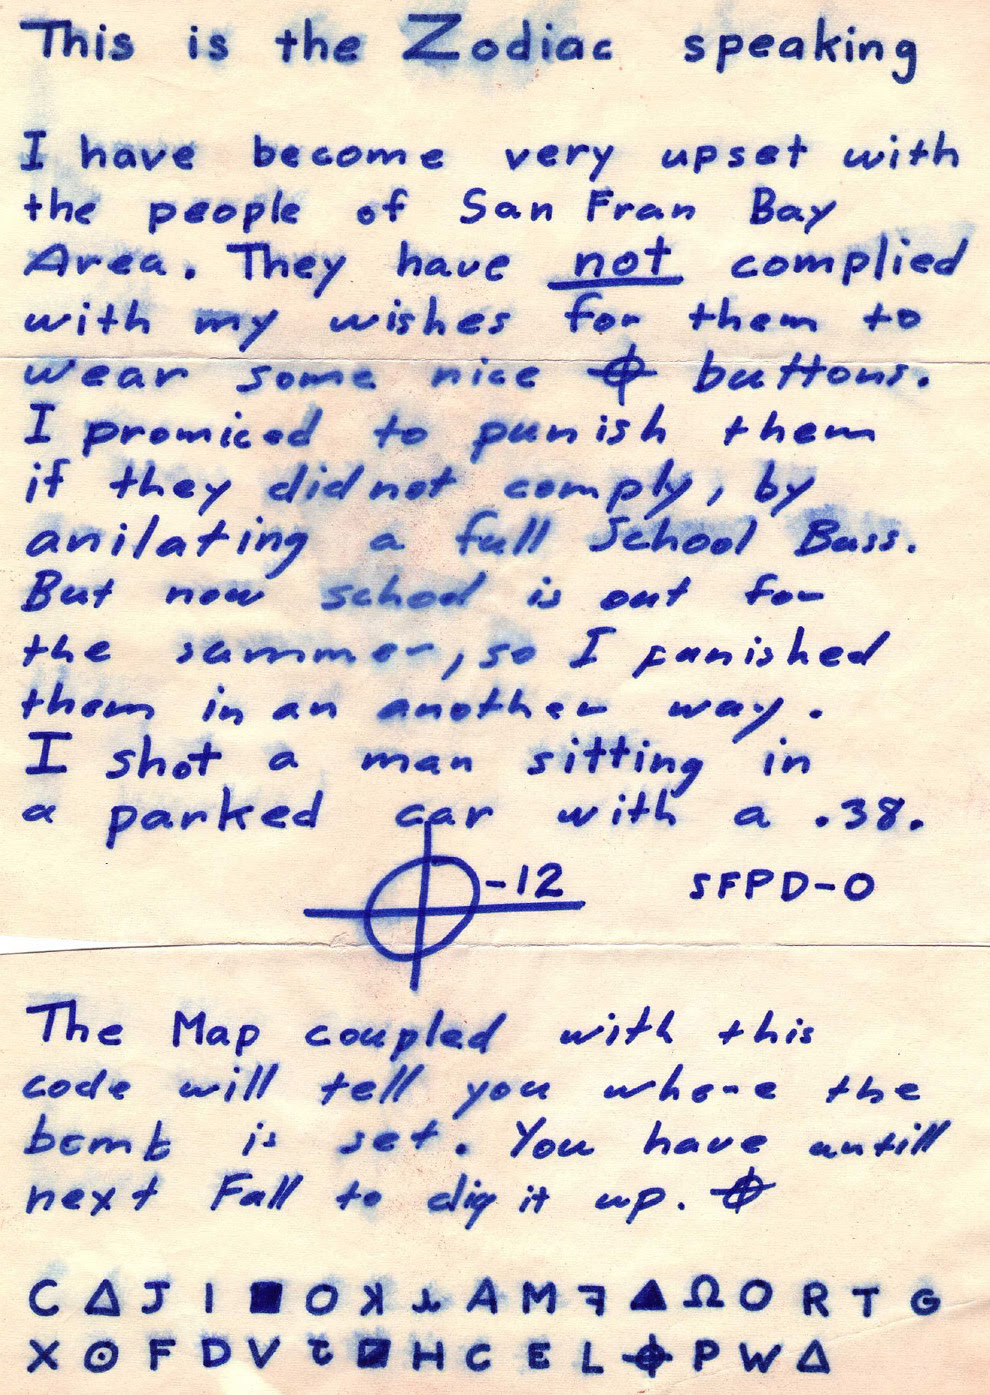 This is the Zodiac speaking
I have become very upset with
the people of San Fran Bay
Area. They have not complied
with my wishes for them to
wear some nice ⌖ buttons.
I promiced to punish them
if they did not comply, by
anilating a full School Buss.
But now school is out for
the summer, so I punished
them in an another way.
I shot a man sitting in
a parked car with a .38.
⌖-12 SFPD-0
The Map coupled with this
code will tell you where the
bomb is set. You have untill
next Fall to dig it up. ⌖
C Δ J I ■ O ꓘ ⅄ A M ꟻ ▲ Ω O R T G
X ⊙ F D V ㄘ ◪ H C E L ⌖ P W Δ